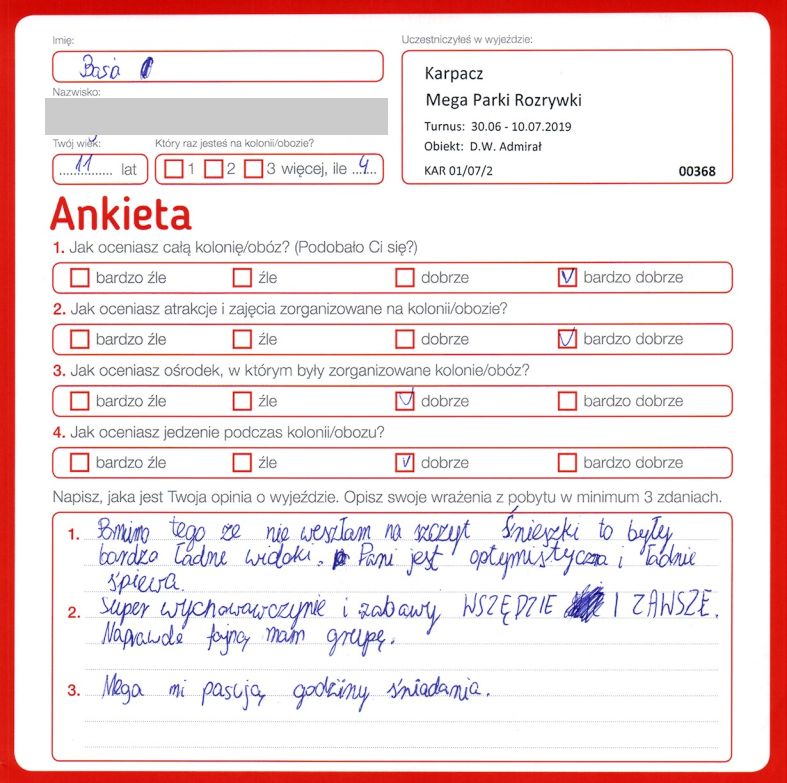 Imię:
Basia
Nazwisko:
Twój wiek:
11 lat
Który raz jesteś na kolonii/obozie?
1 2 3 więcej, ile 4
Uczestniczyłeś w wyjeździe:
Karpacz
Mega Parki Rozrywki
Turnus: 30.06 - 10.07.2019
Obiekt: D.W. Admirał
KAR 01/07/2 00368
Ankieta
1. Jak oceniasz całą kolonię/obóz? (Podobało Ci się?)
bardzo źle źle dobrze bardzo dobrze
2. Jak oceniasz atrakcje i zajęcia zorganizowane na kolonii/obozie?
bardzo źle źle dobrze bardzo dobrze
3. Jak oceniasz ośrodek, w którym były zorganizowane kolonie/obóz?
bardzo źle źle dobrze bardzo dobrze
4. Jak oceniasz jedzenie podczas kolonii/obozu?
bardzo źle źle dobrze bardzo dobrze
Napisz, jaka jest Twoja opinia o wyjeździe. Opisz swoje wrażenia z pobytu w minimum 3 zdaniach.
1. Pomimo tego że nie weszłam na szczyt Śnieszki to były
bardzo ładne widoki. Pani jest optymistyczna i ładnie
śpiewa.
2. Super wychowawczynie i zabawy WSZĘDZIE I ZAWSZE.
Naprawdę fajną mam grupę.
3. Mega mi pasują godziny śniadania.